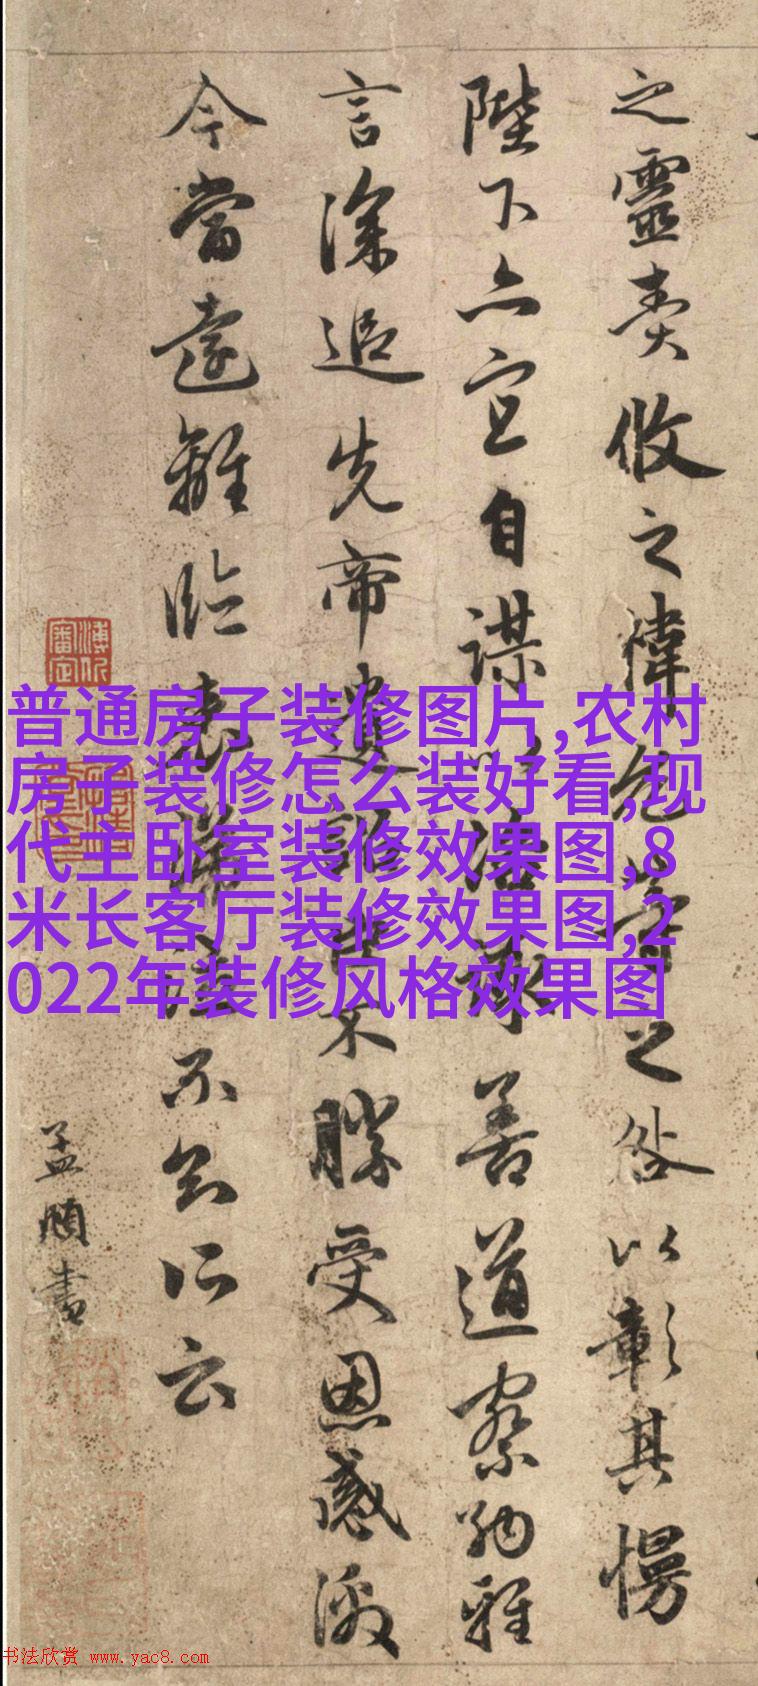 之靈責攸之禕允等之咎以彰其慢
陛下亦宜自謀以諮諏善道察納雅
言深追先帝遺詔臣不勝受恩感激
今當遠離臨表涕泣不知所云
孟頫書
普通房子装修图片,农村
房子装修怎么装好看,现
代主卧室装修效果图,8
米长客厅装修效果图,2
022年装修风格效果图
书法欣赏 www.yac8.com